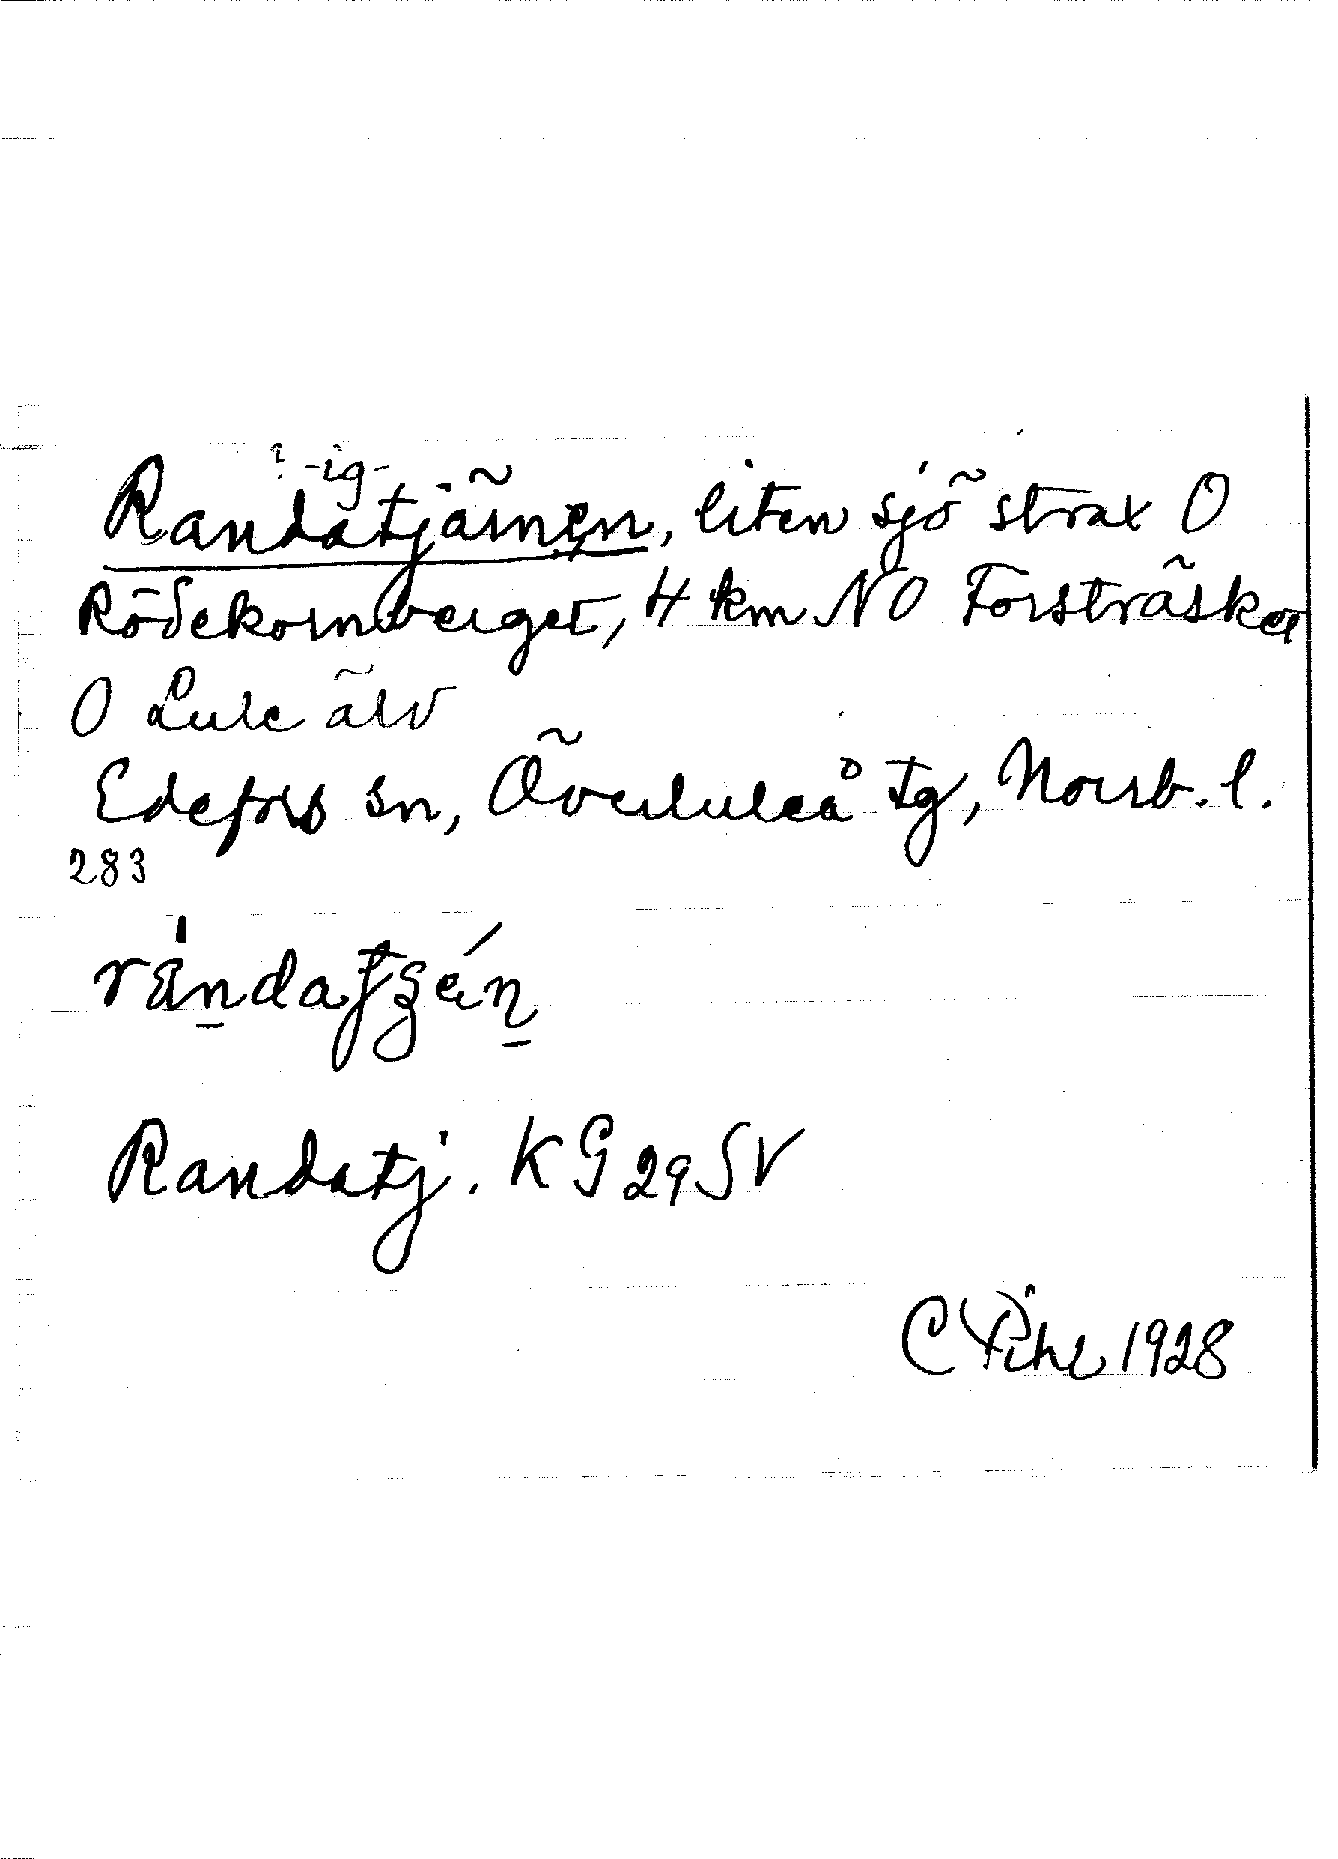 ? -ig-
Randatjärnen, liten sjö strax O
Rödekornberget, 4 km NO Forsträsket
O Lule älv
Edefors sn, Överluleå tg, Norrb. l.
283
Randatj. KG 29 SV
C Pihl 1928